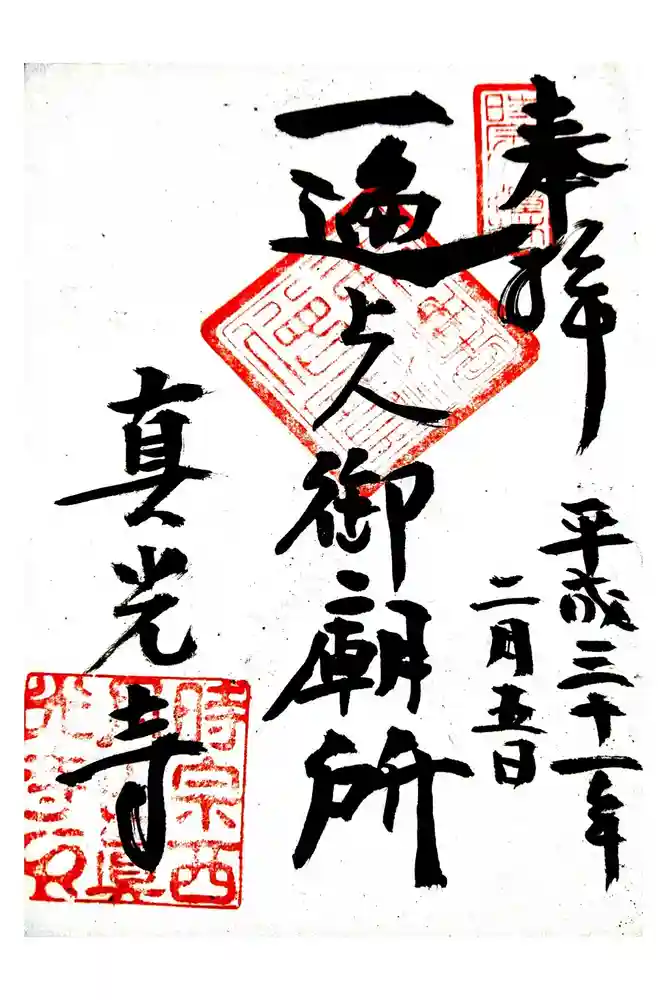 奉拝
平成三十一年
二月五日
一遍上人御廟所
真光寺
時宗西